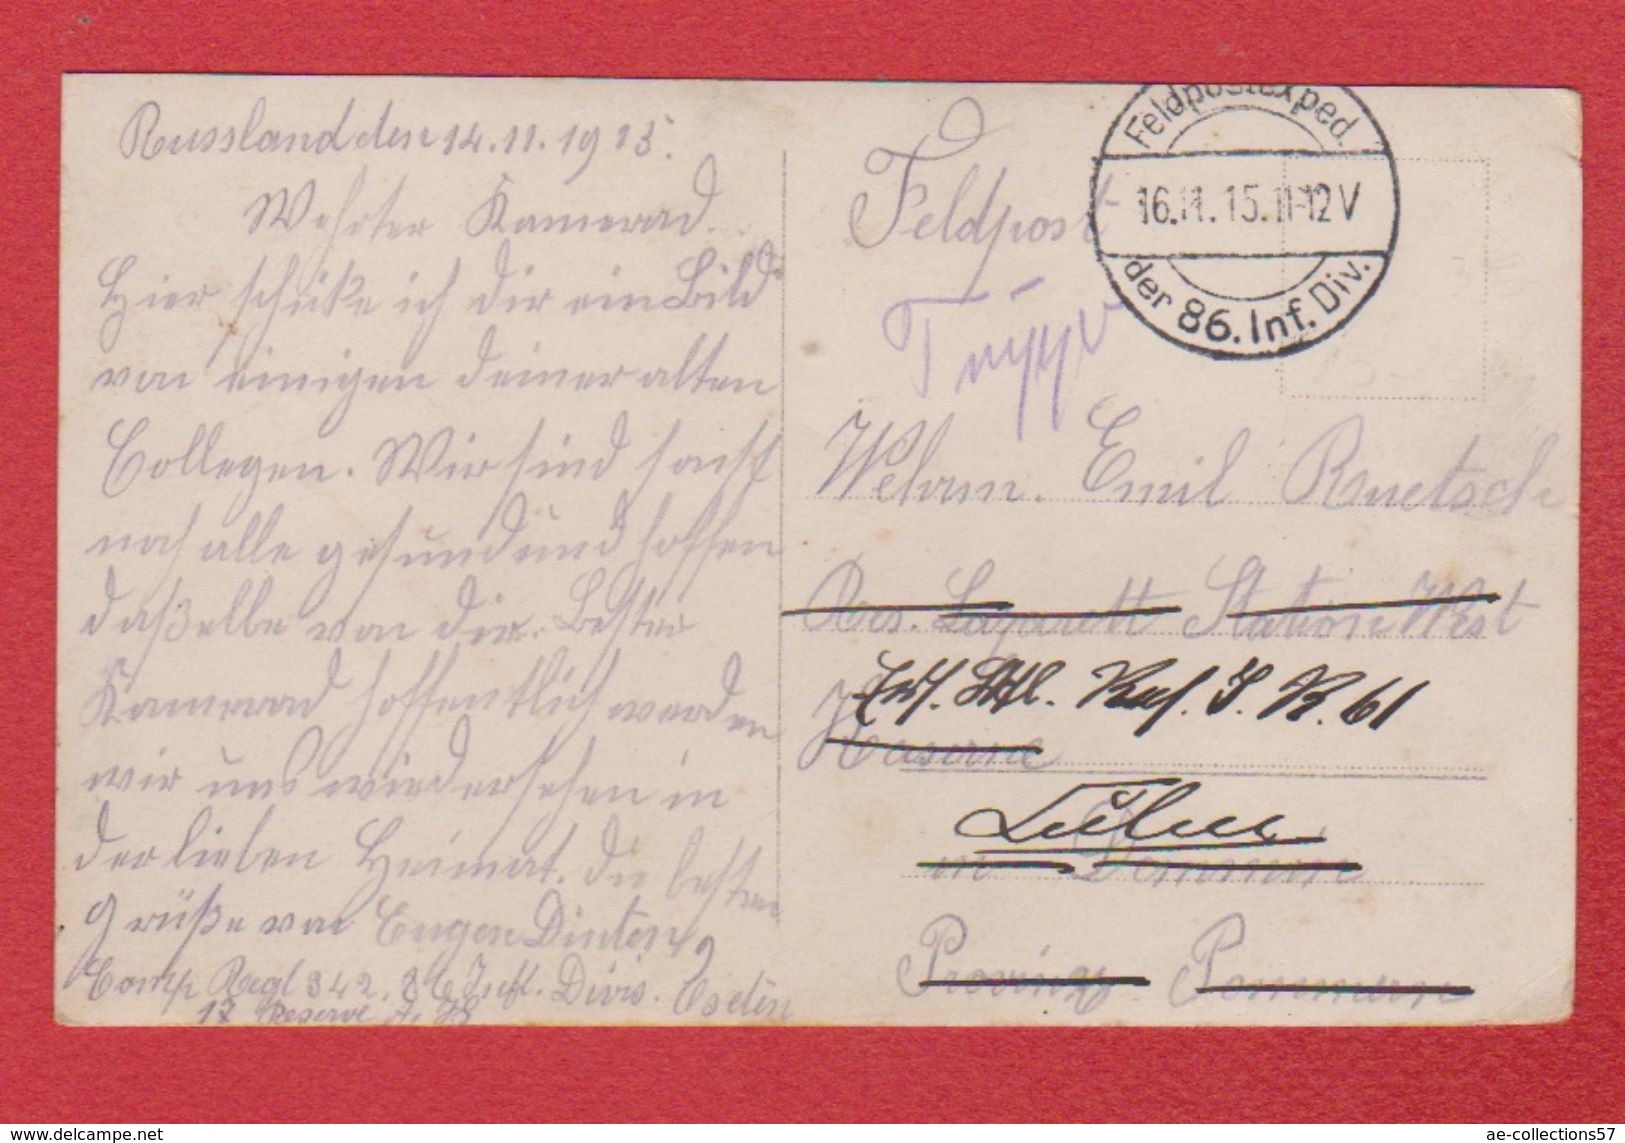 Russland den 14.11.1915.
Wehrter Kamerad.
Hier schike ich dir ein Bild
von einigen deiner alten
Collegen. Wir sind sonst
noch alle gesund und hoffen
daßelbe von dir. Bester
Kamerad hoffentlich werden
wir uns wiedersehen in
der lieben Heimat. die besten
Grüße von Eugen
Comp Regl 342. 86 Inft. Divis.
12 Reserve
Feldpost
Feldpostexped.
16.11.15.11-12V
der 86. Inf. Div.
Wehrm. Emil Ruetsch
Res. Lazarett Station West
Ers. Btl. Res. I. R. 61
Kaserne
in Demmin
Provinz Pommern
www.delcampe.net
ae-collections57